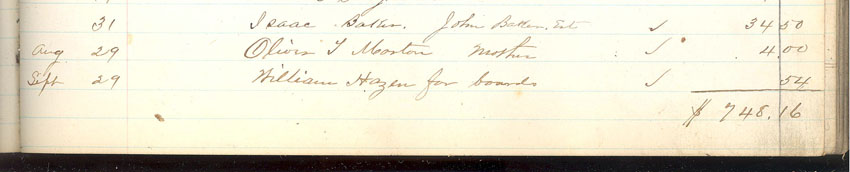 31 Isaac Baker. John Baker. Est ✓ 34 50
Aug 29 Olivis T Morton Mother ✓ 4.00
Sept 29 William Hazen for boards ✓ 54
$ 748.16